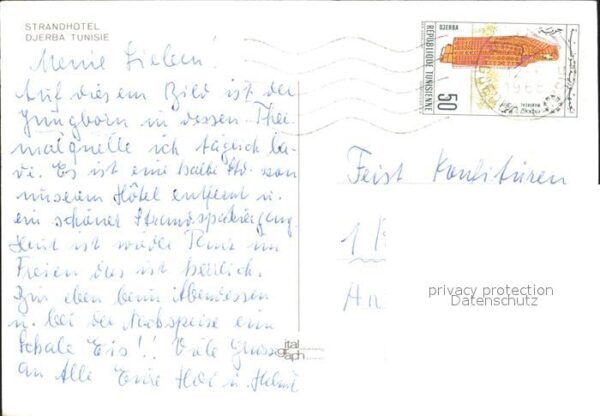 STRANDHOTEL
DJERBA TUNISIE
Meine Lieben!
Auf diesem Bild ist der
Jungborn in dessen Ther
malquelle ich täglich ba-
de. Es ist eine halbe Std. von
unserem Hôtel entfernt u.
ein schöner Strandspaziergang.
Heut ist wieder im
Freien das ist herrlich.
Bin eben beim Abendessen
u. bei der Nachspeise ein
Schale Eis!! Viele Grüsse
an Alle Eure u. Helmut
ital
graph
DJERBA
REPUBLIQUE TUNISIENNE
50
Feist Konfitüren
1
privacy protection
Datenschutz